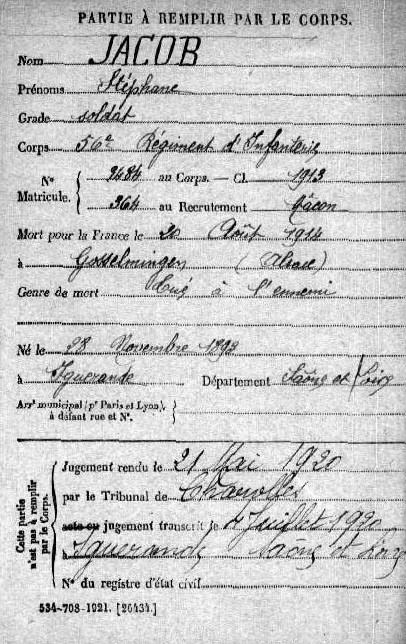 PARTIE À REMPLIR PAR LE CORPS.
Nom JACOB
Prénoms Stéphane
Grade soldat
Corps 56e Régiment d'Infanterie
N° Matricule. { 3484 au Corps. — Cl. 1913
364 au Recrutement Macon
Mort pour la France le 20 Août 1914
à Gosselmingen (Alsace)
Genre de mort tué à l'ennemi
Né le 28 Novembre 1893
à Iguerande Département Saône et Loire
Arrt municipal (pr Paris et Lyon), à défaut rue et N°. {
Cette partie n'est pas à remplir par le Corps.
Jugement rendu le 21 Mai 1920
par le Tribunal de Charolles
acte ou jugement transcrit le Juillet 1920
à Iguerande Saône et Loire
N° du registre d'état civil
534-708-1921. [26434.]